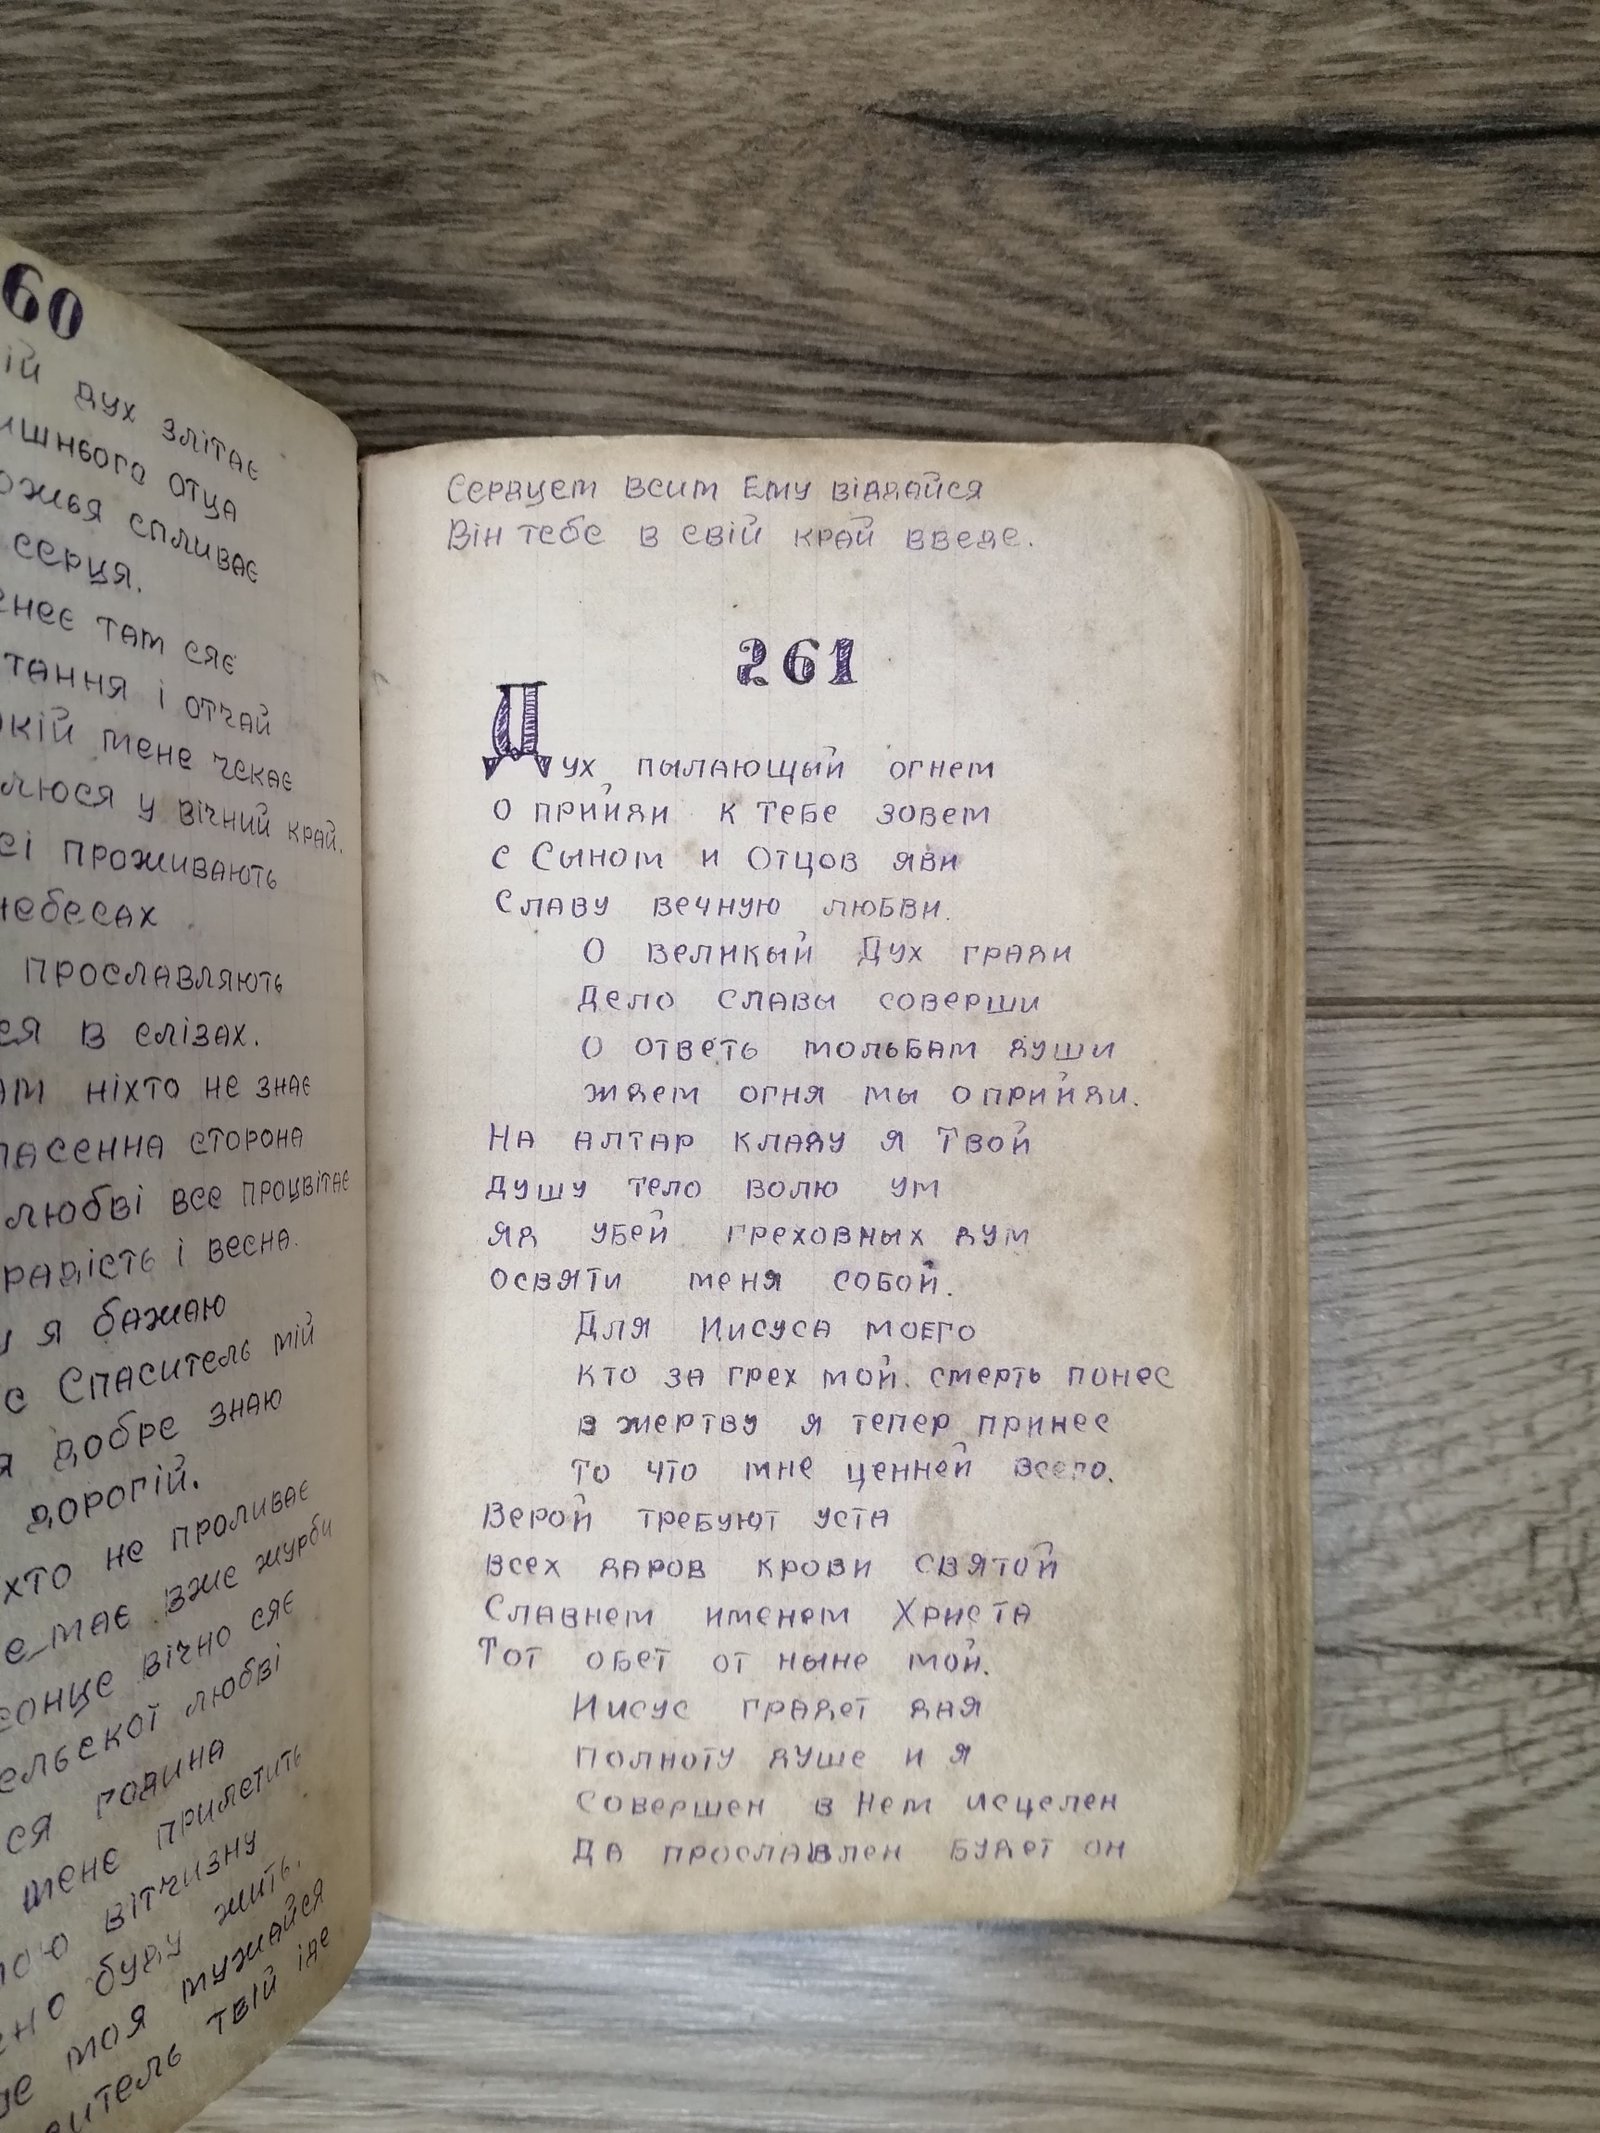 60
дух злітає
отца
спливає
серця.
там сяє
і отчай
мене чекає
у вічний край.
проживають
небесах
прославляють
в слізах.
ніхто не знає
сторона
любві все процвітає
радість і весна.
я бажаю
Спаситель мій
я добре знаю
дорогій.
не проливає
має вже журби
вічно сяє
любві
година
мене прилетить
вітчизну
буду жить.
моя мужайся
твій іде
Сердцем всим Ему віддайся
Він тебе в свій край введе.
261
Дух пылающый огнем
О прийди к тебе зовем
с Сыном и Отцов яви
Славу вечную любви.
О великый Дух гряди
Дело славы соверши
О ответь мольбам души
ждем огня мы о прийди.
На алтар кладу я Твой
душу тело волю ум
яд убей греховных дум
освяти меня собой.
Для Иисуса моего
кто за грех мой смерть понес
в жертву я тепер принес
то что мне ценней всего.
Верой требуют уста
всех даров крови святой
Славнем именем Христа
Тот обет от ныне мой.
Иисус грядет дая
полноту душе и я
совершен в Нем исцелен
Да прославлен будет он